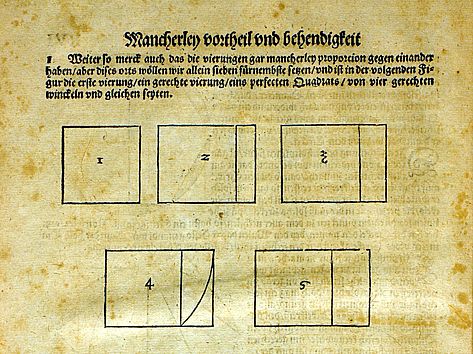 Mancherley vortheil vnd behendigkeit
1 Weiter so merck auch das die vierungen gar mancherley proporcion gegen einander
haben/aber dises orts wöllen wir allein sieben fürnembste setzen/vnd ist in der volgenden Fi-
gur die erste vierung/ein gerechte vierung/eins perfecten Quadrats/von vier gerechten
winckeln vnd gleichen seyten.
1 2 3
4 5